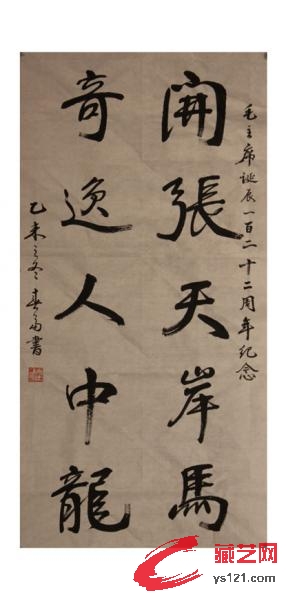 毛主席诞辰一百二十二周年纪念
開張天岸馬
奇逸人中龍
乙未之冬春富書
藏艺网
ys121.com